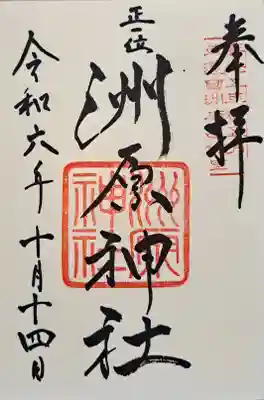 奉拝
正一位
洲原神社
洲原神社
令和六年十月十四日